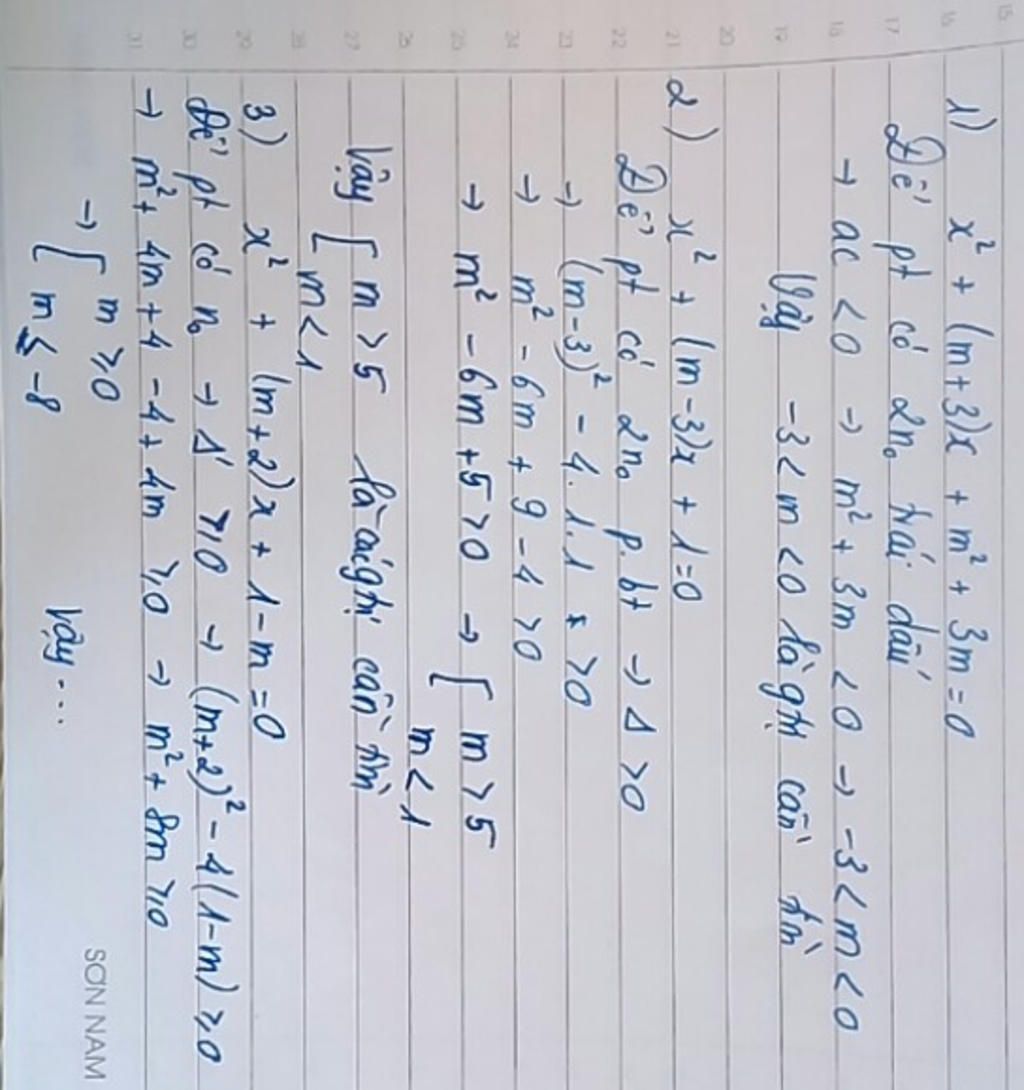 15
16
17
18
19
20
21
22
23
24
25
26
27
28
29
30
31
1) x² + (m+3)x + m² + 3m = 0
Để pt có 2n₀ trái dấu
→ ac < 0 → m² + 3m < 0 → -3 < m < 0
Vậy -3 < m < 0 là gtrị cần tìm
2) x² + (m-3)x + 1 = 0
Để pt có 2n₀ p.bt → Δ > 0
→ (m-3)² - 4.1.1 > 0
→ m² - 6m + 9 - 4 > 0
→ m² - 6m + 5 > 0 → [ m > 5
m < 1
Vậy [ m > 5 là các gtrị cần tìm
m < 1
3) x² + (m+2)x + 1 - m = 0
Để pt có n₀ → Δ' ≥ 0 → (m+2)² - 4(1-m) ≥ 0
→ m² + 4m + 4 - 4 + 4m ≥ 0 → m² + 8m ≥ 0
→ [ m ≥ 0
m ≤ -8
Vậy ....
SƠN NAM